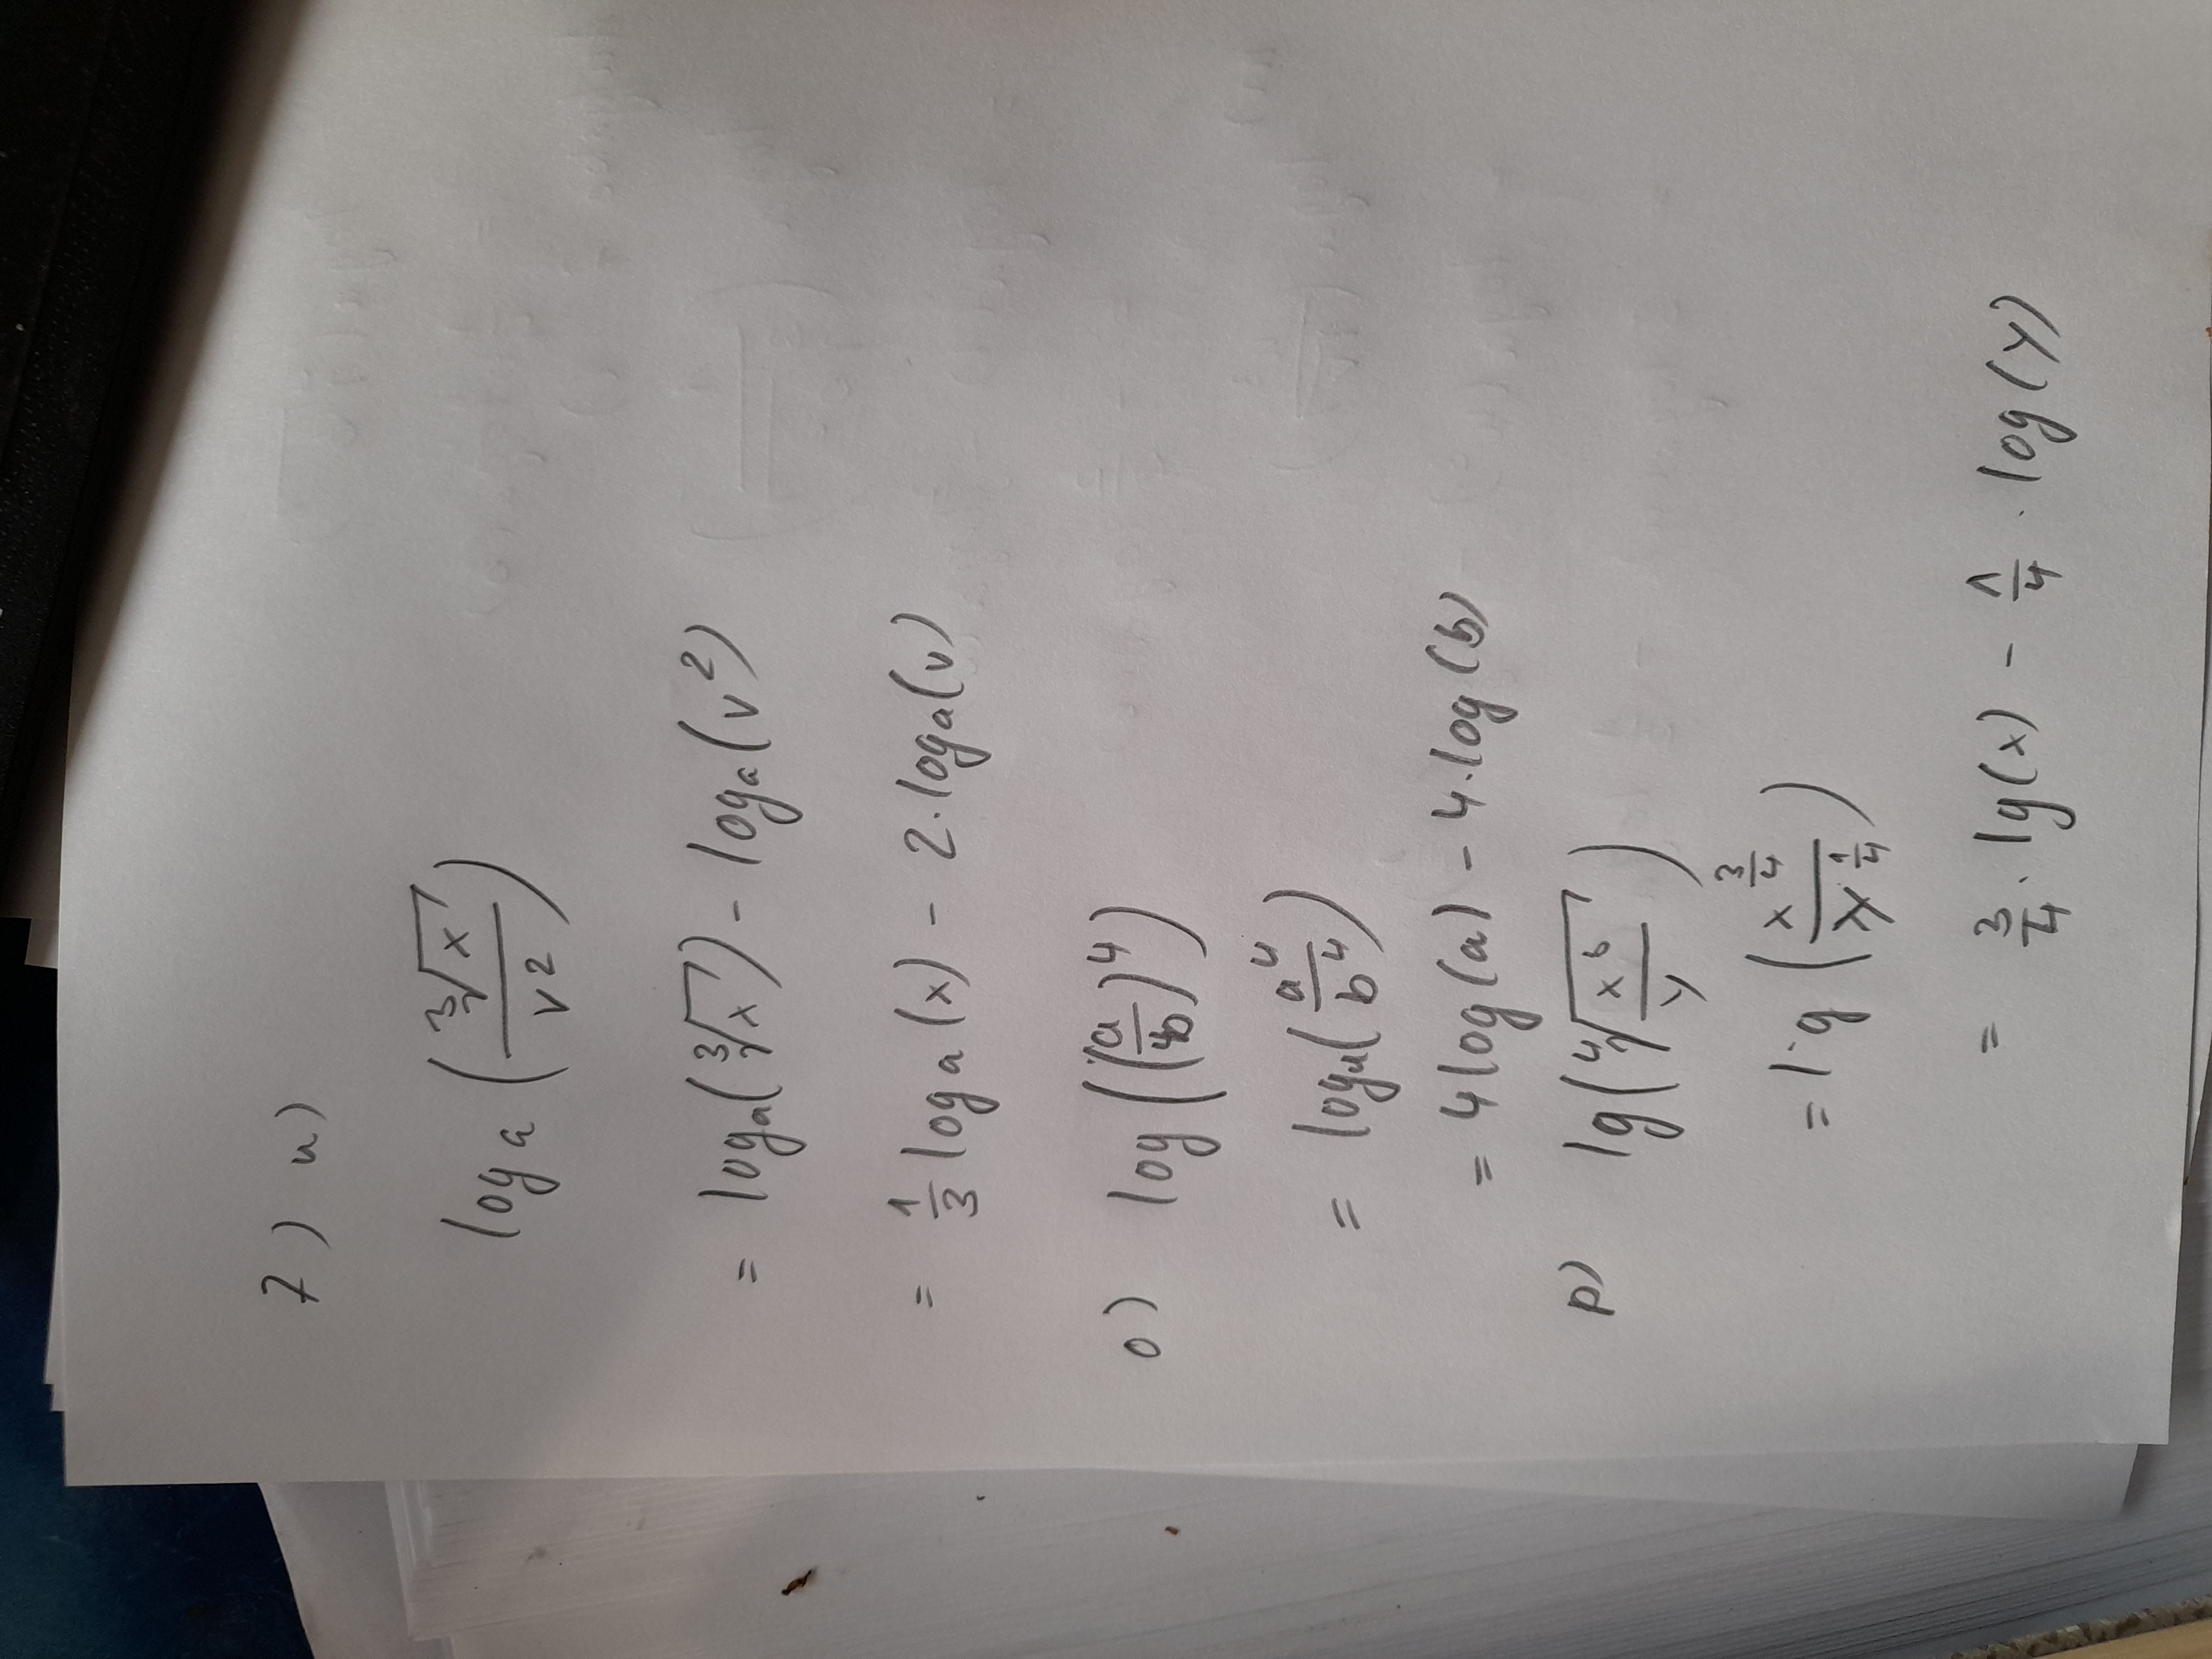 7) n)
log a (∛x / v²)
= logₐ(∛x) - logₐ(v²)
= 1/3 log a (x) - 2 · logₐ(v)
o) log ((a/b)⁴)
= log (a⁴/b⁴)
= 4 log (a) - 4 · log (b)
p) lg (∜(x³/y))
= lg (x^(3/4) / y^(1/4))
= 3/4 · lg(x) - 1/4 · log (y)